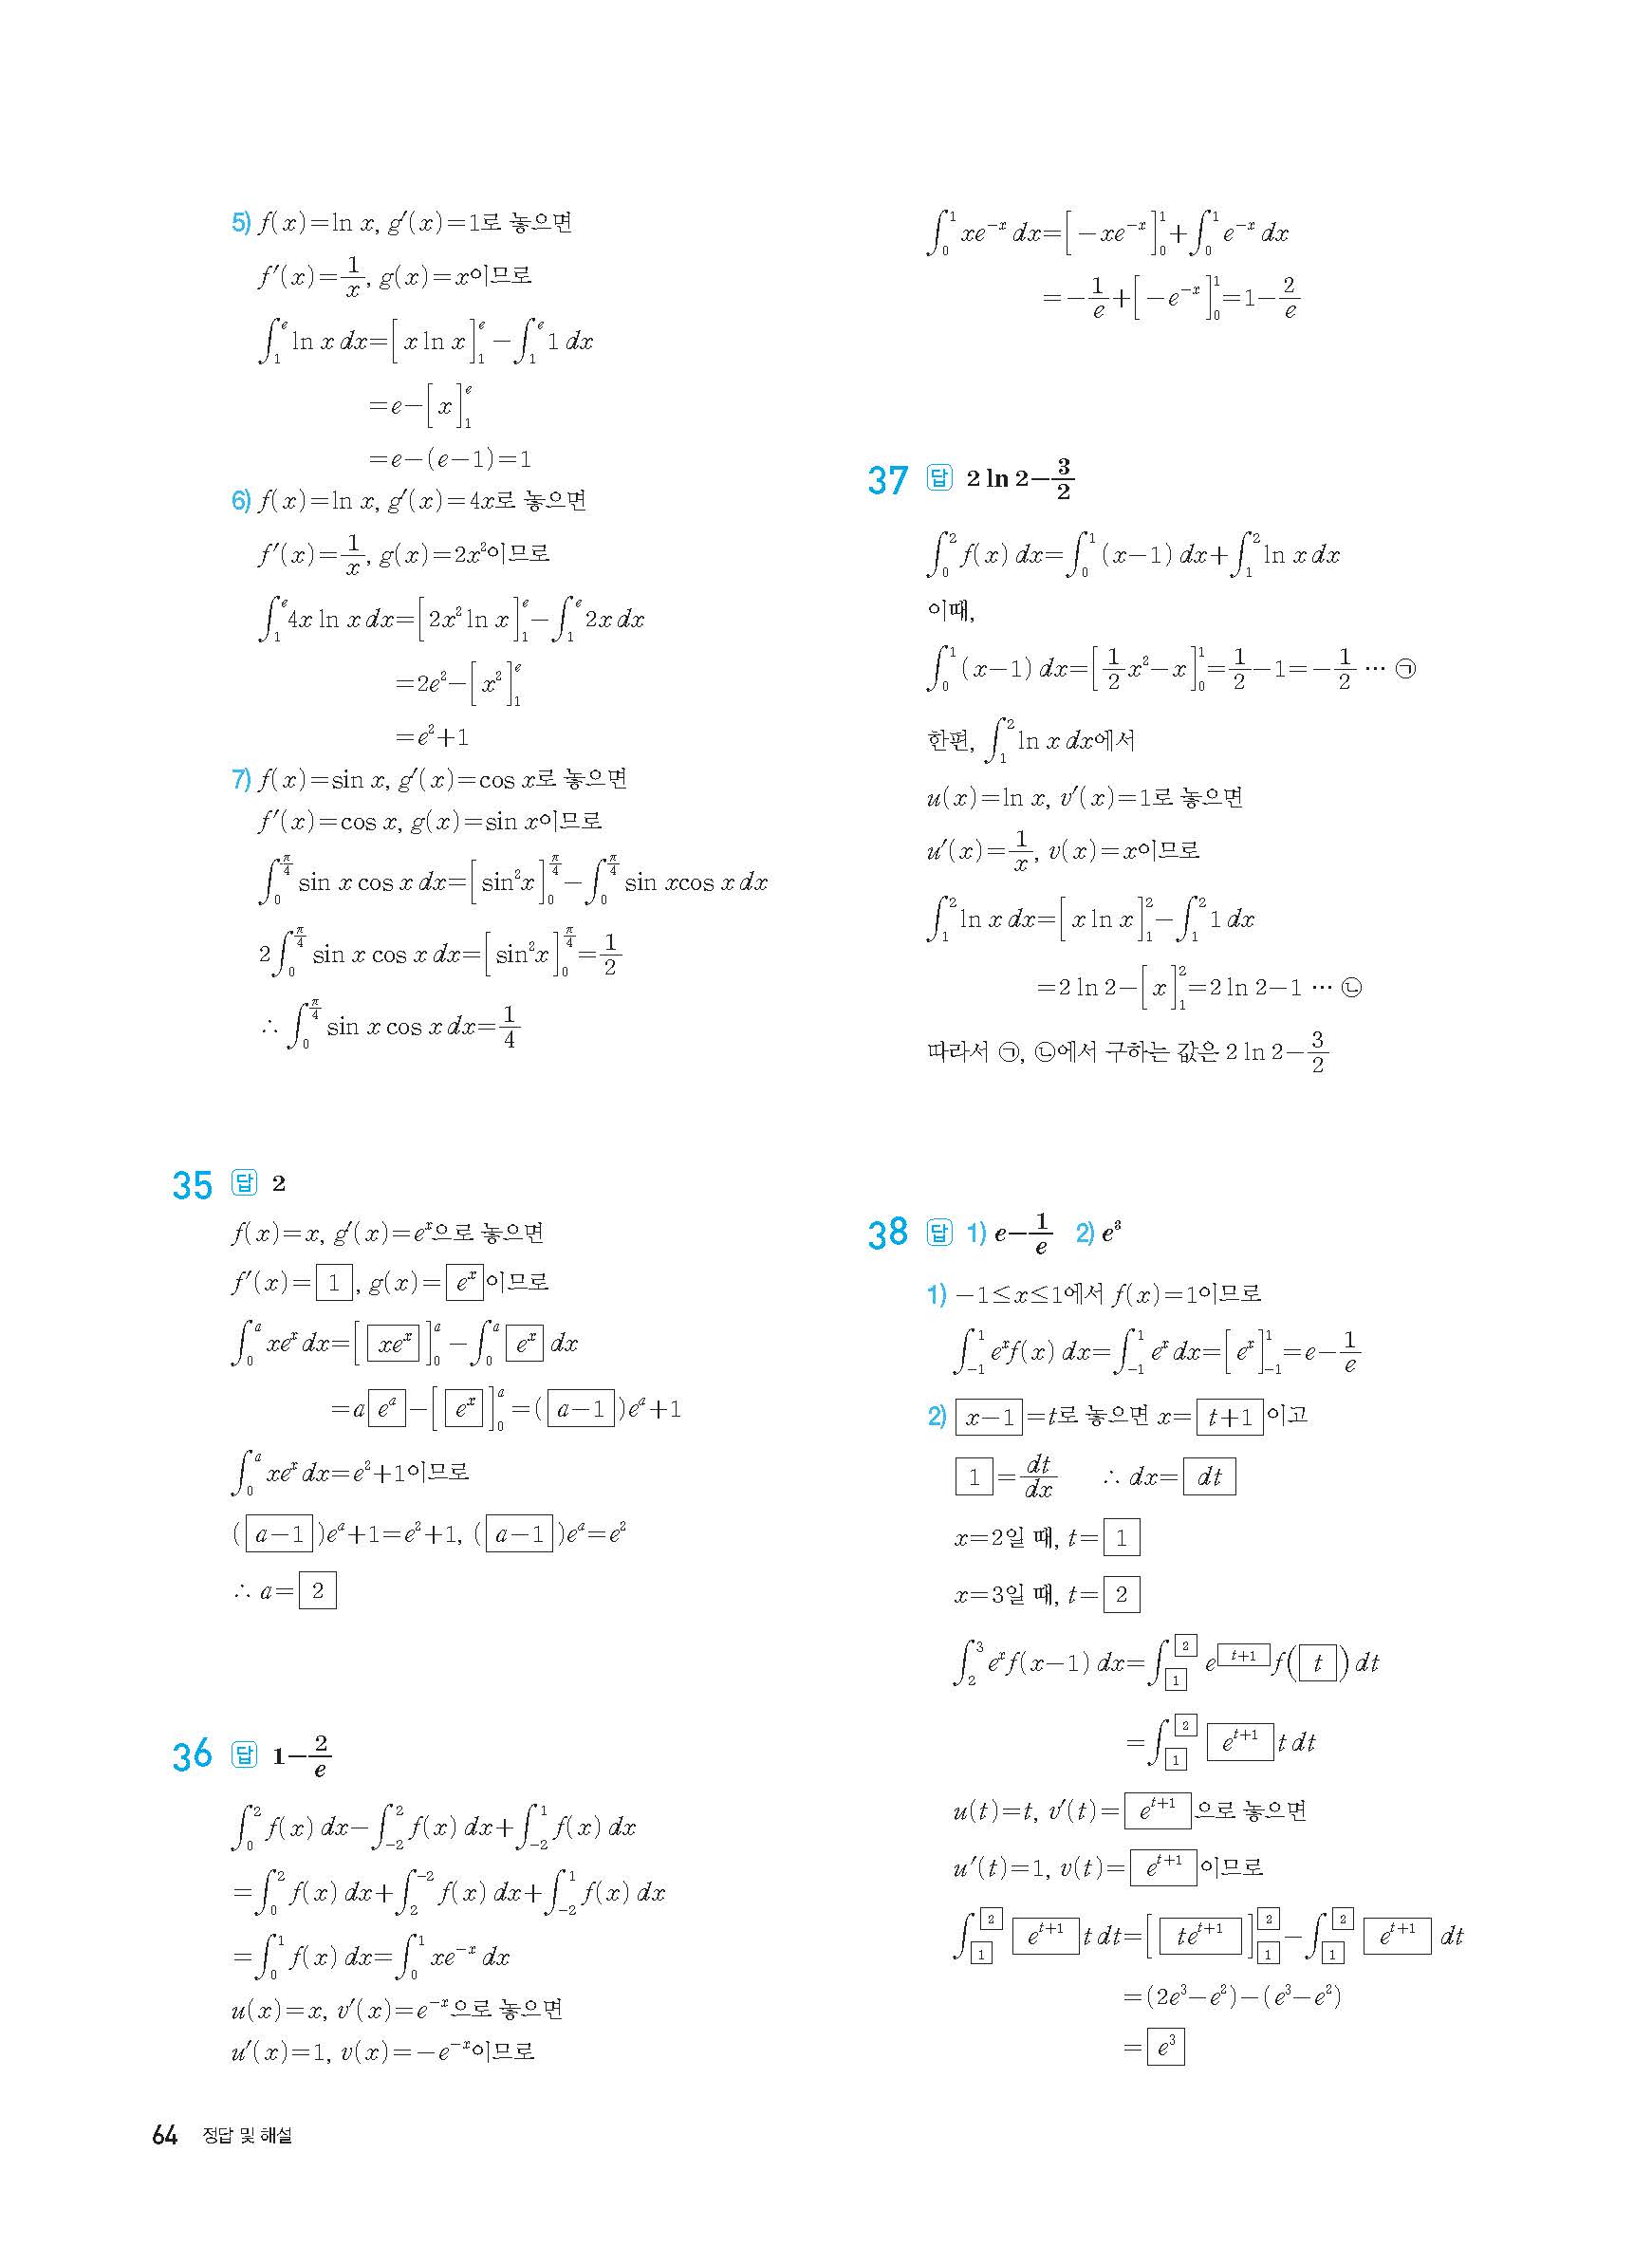 5) f(x)=ln x, g′(x)=1로 놓으면
f′(x)=1/x, g(x)=x이므로
∫₁ᵉ ln x dx=[x ln x]₁ᵉ−∫₁ᵉ 1 dx
=e−[x]₁ᵉ
=e−(e−1)=1
6) f(x)=ln x, g′(x)=4x로 놓으면
f′(x)=1/x, g(x)=2x²이므로
∫₁ᵉ 4x ln x dx=[2x² ln x]₁ᵉ−∫₁ᵉ 2x dx
=2e²−[x²]₁ᵉ
=e²+1
7) f(x)=sin x, g′(x)=cos x로 놓으면
f′(x)=cos x, g(x)=sin x이므로
∫_0^{π/4} sin x cos x dx=[sin²x]_0^{π/4}−∫_0^{π/4} sin xcos x dx
2∫_0^{π/4} sin x cos x dx=[sin²x]_0^{π/4}=1/2
∴ ∫_0^{π/4} sin x cos x dx=1/4
35 답 2
f(x)=x, g′(x)=eˣ으로 놓으면
f′(x)= 1 , g(x)= eˣ 이므로
∫_0^a xeˣ dx=[ xeˣ ]_0^a−∫_0^a eˣ dx
=a eᵃ −[ eˣ ]_0^a=( a−1 )eᵃ+1
∫_0^a xeˣ dx=e²+1이므로
( a−1 )eᵃ+1=e²+1, ( a−1 )eᵃ=e²
∴ a= 2
36 답 1−2/e
∫_0^2 f(x) dx−∫_{−2}^2 f(x) dx+∫_{−2}^1 f(x) dx
=∫_0^2 f(x) dx+∫_2^{−2} f(x) dx+∫_{−2}^1 f(x) dx
=∫_0^1 f(x) dx=∫_0^1 xe⁻ˣ dx
u(x)=x, v′(x)=e⁻ˣ으로 놓으면
u′(x)=1, v(x)=−e⁻ˣ이므로
∫_0^1 xe⁻ˣ dx=[−xe⁻ˣ]_0^1+∫_0^1 e⁻ˣ dx
=−1/e+[−e⁻ˣ]_0^1=1−2/e
37 답 2 ln 2−3/2
∫_0^2 f(x) dx=∫_0^1 (x−1) dx+∫_1^2 ln x dx
이때,
∫_0^1 (x−1) dx=[1/2 x²−x]_0^1=1/2−1=−1/2 … ㉠
한편, ∫_1^2 ln x dx에서
u(x)=ln x, v′(x)=1로 놓으면
u′(x)=1/x, v(x)=x이므로
∫_1^2 ln x dx=[x ln x]_1^2−∫_1^2 1 dx
=2 ln 2−[x]_1^2=2 ln 2−1 … ㉡
따라서 ㉠, ㉡에서 구하는 값은 2 ln 2−3/2
38 답 1) e−1/e 2) e³
1) −1≤x≤1에서 f(x)=1이므로
∫_{−1}^1 eˣf(x) dx=∫_{−1}^1 eˣ dx=[eˣ]_{−1}^1=e−1/e
2) x−1 =t로 놓으면 x= t+1 이고
1 =dt/dx ∴ dx= dt
x=2일 때, t= 1
x=3일 때, t= 2
∫_2^3 eˣf(x−1) dx=∫_1^2 e^{t+1} f( t )dt
=∫_1^2 e^{t+1} t dt
u(t)=t, v′(t)= e^{t+1} 으로 놓으면
u′(t)=1, v(t)= e^{t+1} 이므로
∫_1^2 e^{t+1} t dt=[ te^{t+1} ]_1^2−∫_1^2 e^{t+1} dt
=(2e³−e²)−(e³−e²)
= e³
64 정답 및 해설